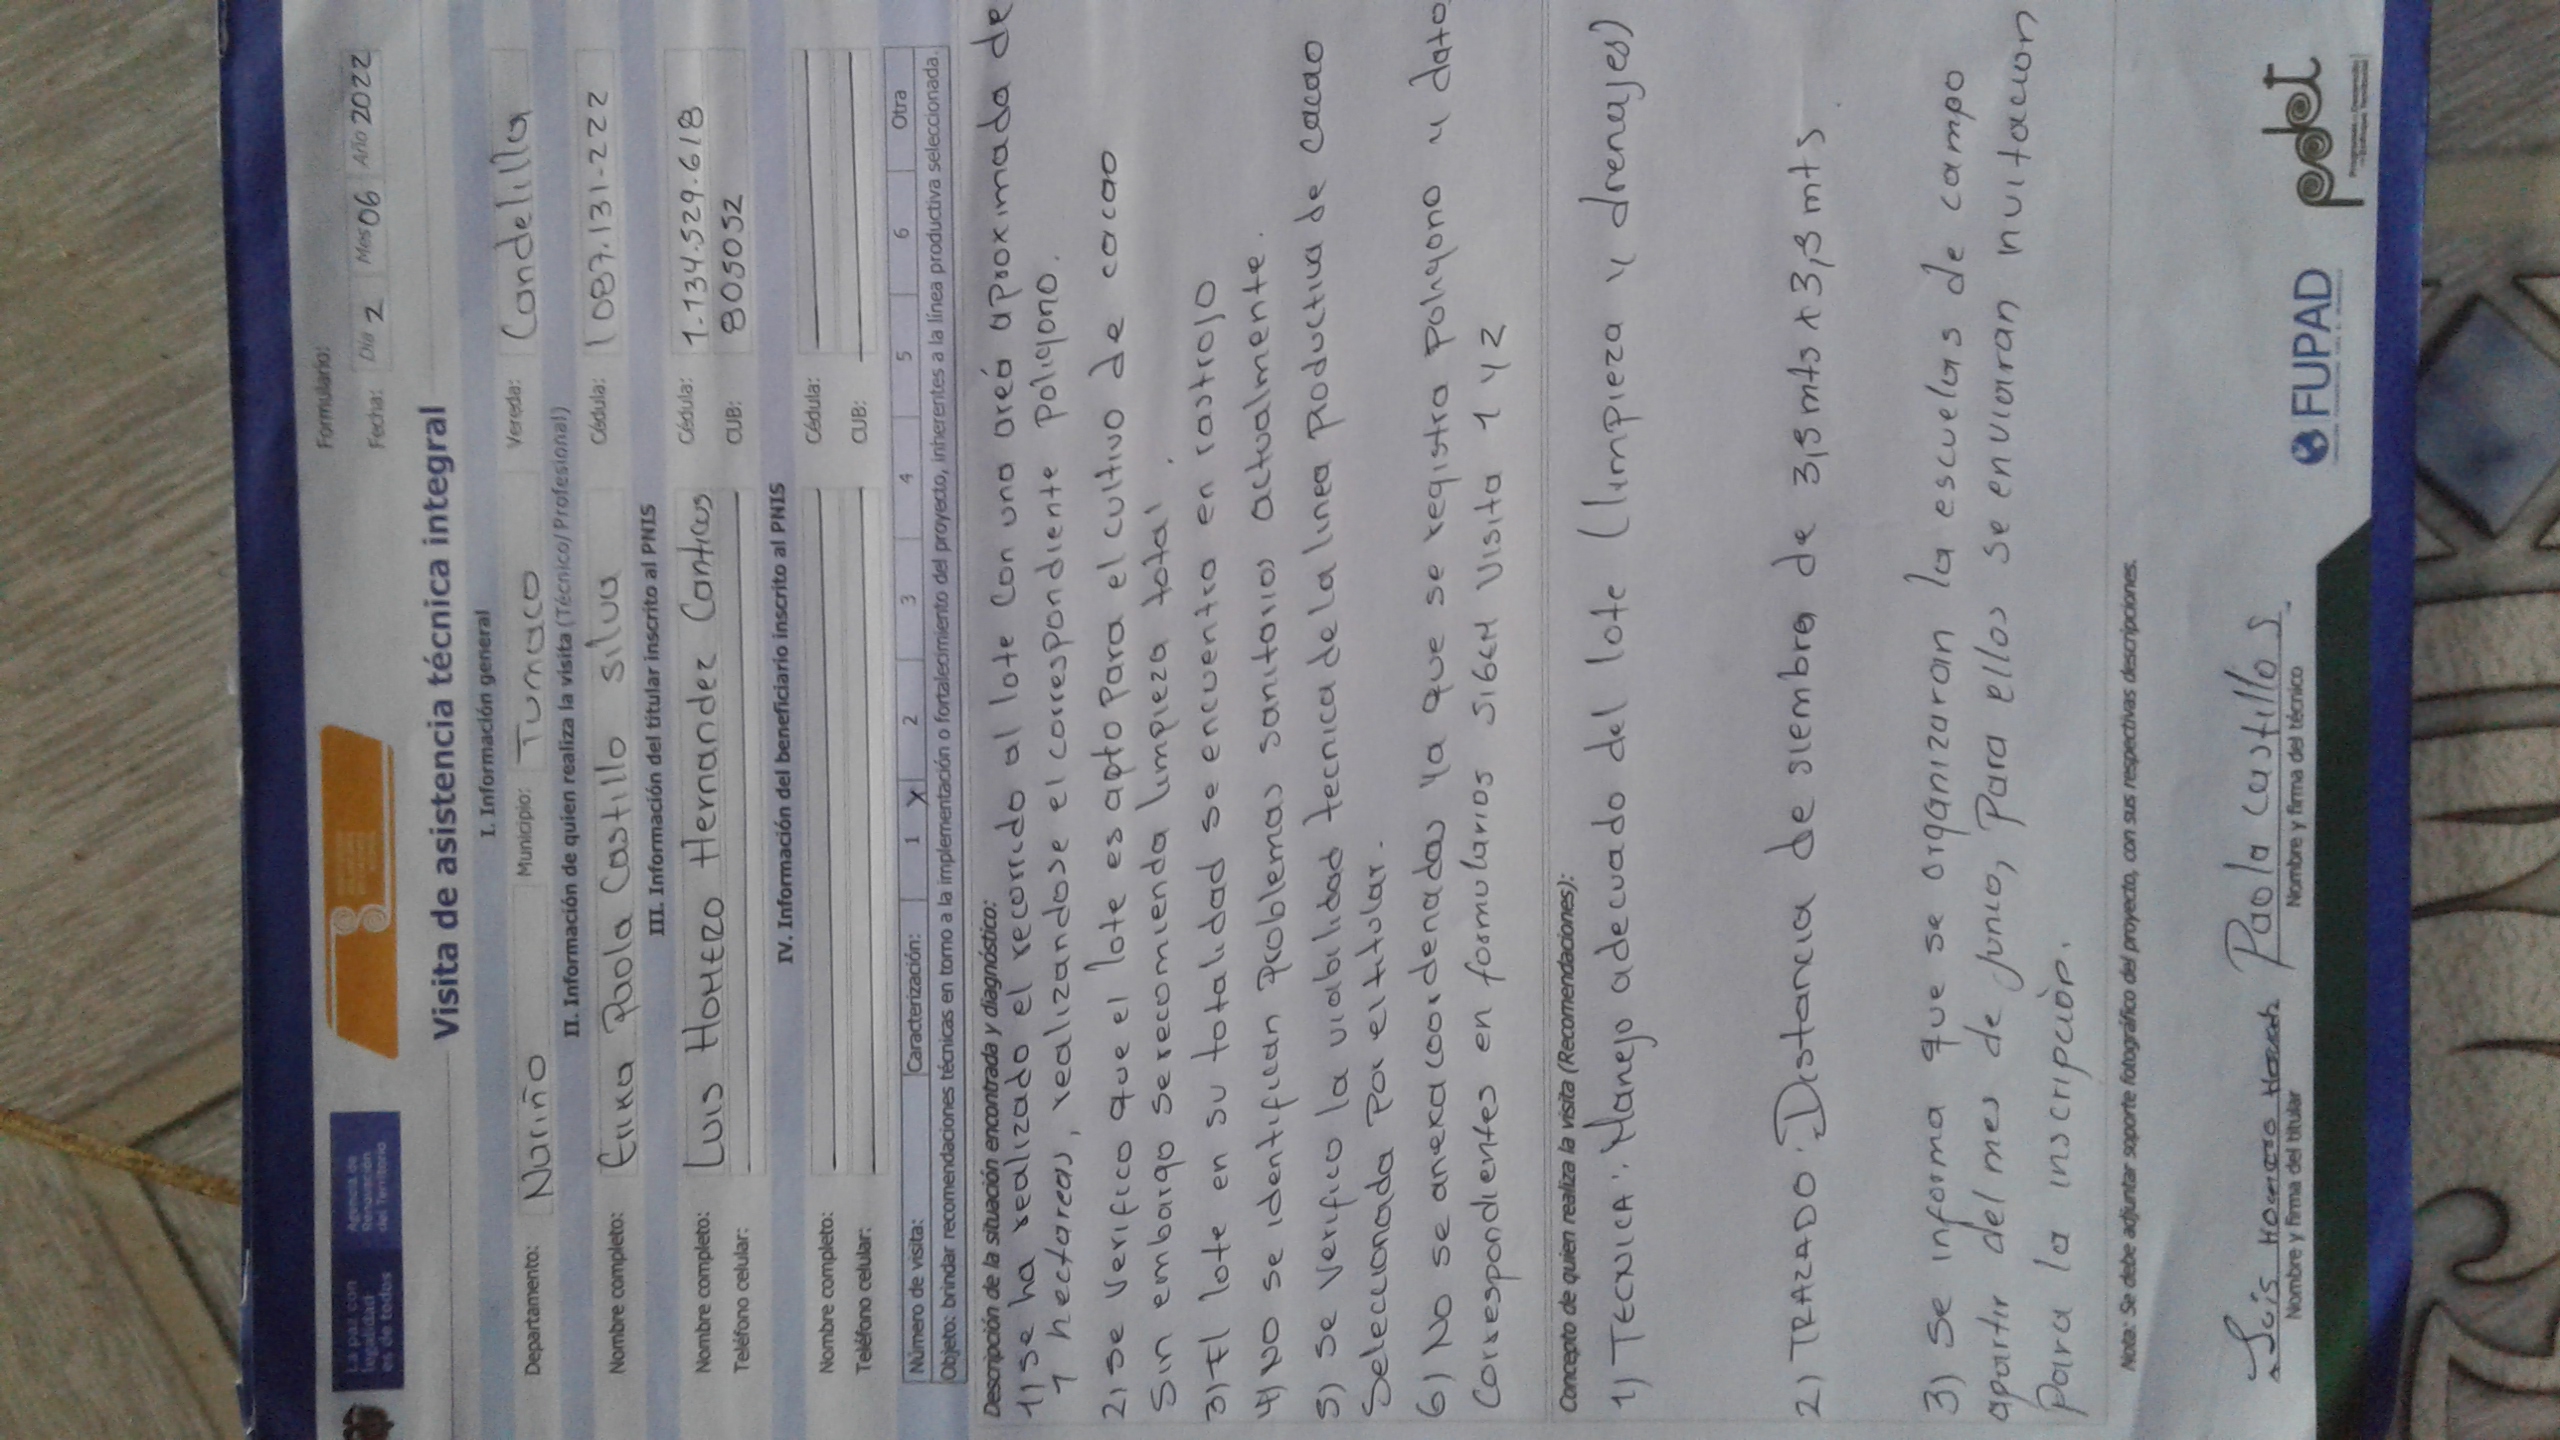 La paz con
legalidad
es de todos
Agencia de
Renovación
del Territorio
Formulario:
Fecha: Día 2 Mes 06 Año 2022
Visita de asistencia técnica integral
I. Información general
Departamento: Nariño Municipio: Tumaco Vereda: Candelilla
II. Información de quien realiza la visita (Técnico/Profesional)
Nombre completo: Erika Paola Castillo silva Cédula: 1087.131-222
III. Información del titular inscrito al PNIS
Nombre completo: Luis HoMERO Hernandez Contreras Cédula: 1.134.529.618
Teléfono celular: CUB: 805052
IV. Información del beneficiario inscrito al PNIS
Nombre completo: Cédula:
Teléfono celular: CUB:
Número de visita: Caracterización: 1 X 2 3 4 5 6 Otra
Objeto: brindar recomendaciones técnicas en torno a la implementación o fortalecimiento del proyecto, inherentes a la línea productiva seleccionada.
Descripción de la situación encontrada y diagnóstico:
1) se ha realizado el recorrido al lote con una areá aproximada de
1 hectareas, realizandose el correspondiente poligono.
2) se verifico que el lote es apto para el cultivo de cacao
Sin embargo se recomienda limpieza total.
3) El lote en su totalidad se encuentra en rastrojo
4) No se identifican problemas sanitarios actualmente.
5) se verifico la viabilidad tecnica de la linea productiva de cacao
Seleccionada por el titular.
6) No se anexa coordenadas ya que se registra poligono y dato
Correspondientes en formularios SIGEH Visita 1 y 2
Concepto de quien realiza la visita (Recomendaciones):
1) TECNICA: Manejo adecuado del lote (limpieza y drenajes)
2) TRAZADO: Distancia de siembra de 3,5 mts x 3,5 mts.
3) Se informa que se organizaran la escuelas de campo
apartir del mes de Junio, Para ellos se enviaran invitacion
para la inscripción.
Nota: Se debe adjuntar soporte fotográfico del proyecto, con sus respectivas descripciones.
Luis Homero
Nombre y firma del titular
Paola Castillo S
Nombre y firma del técnico
FUPAD
pdet